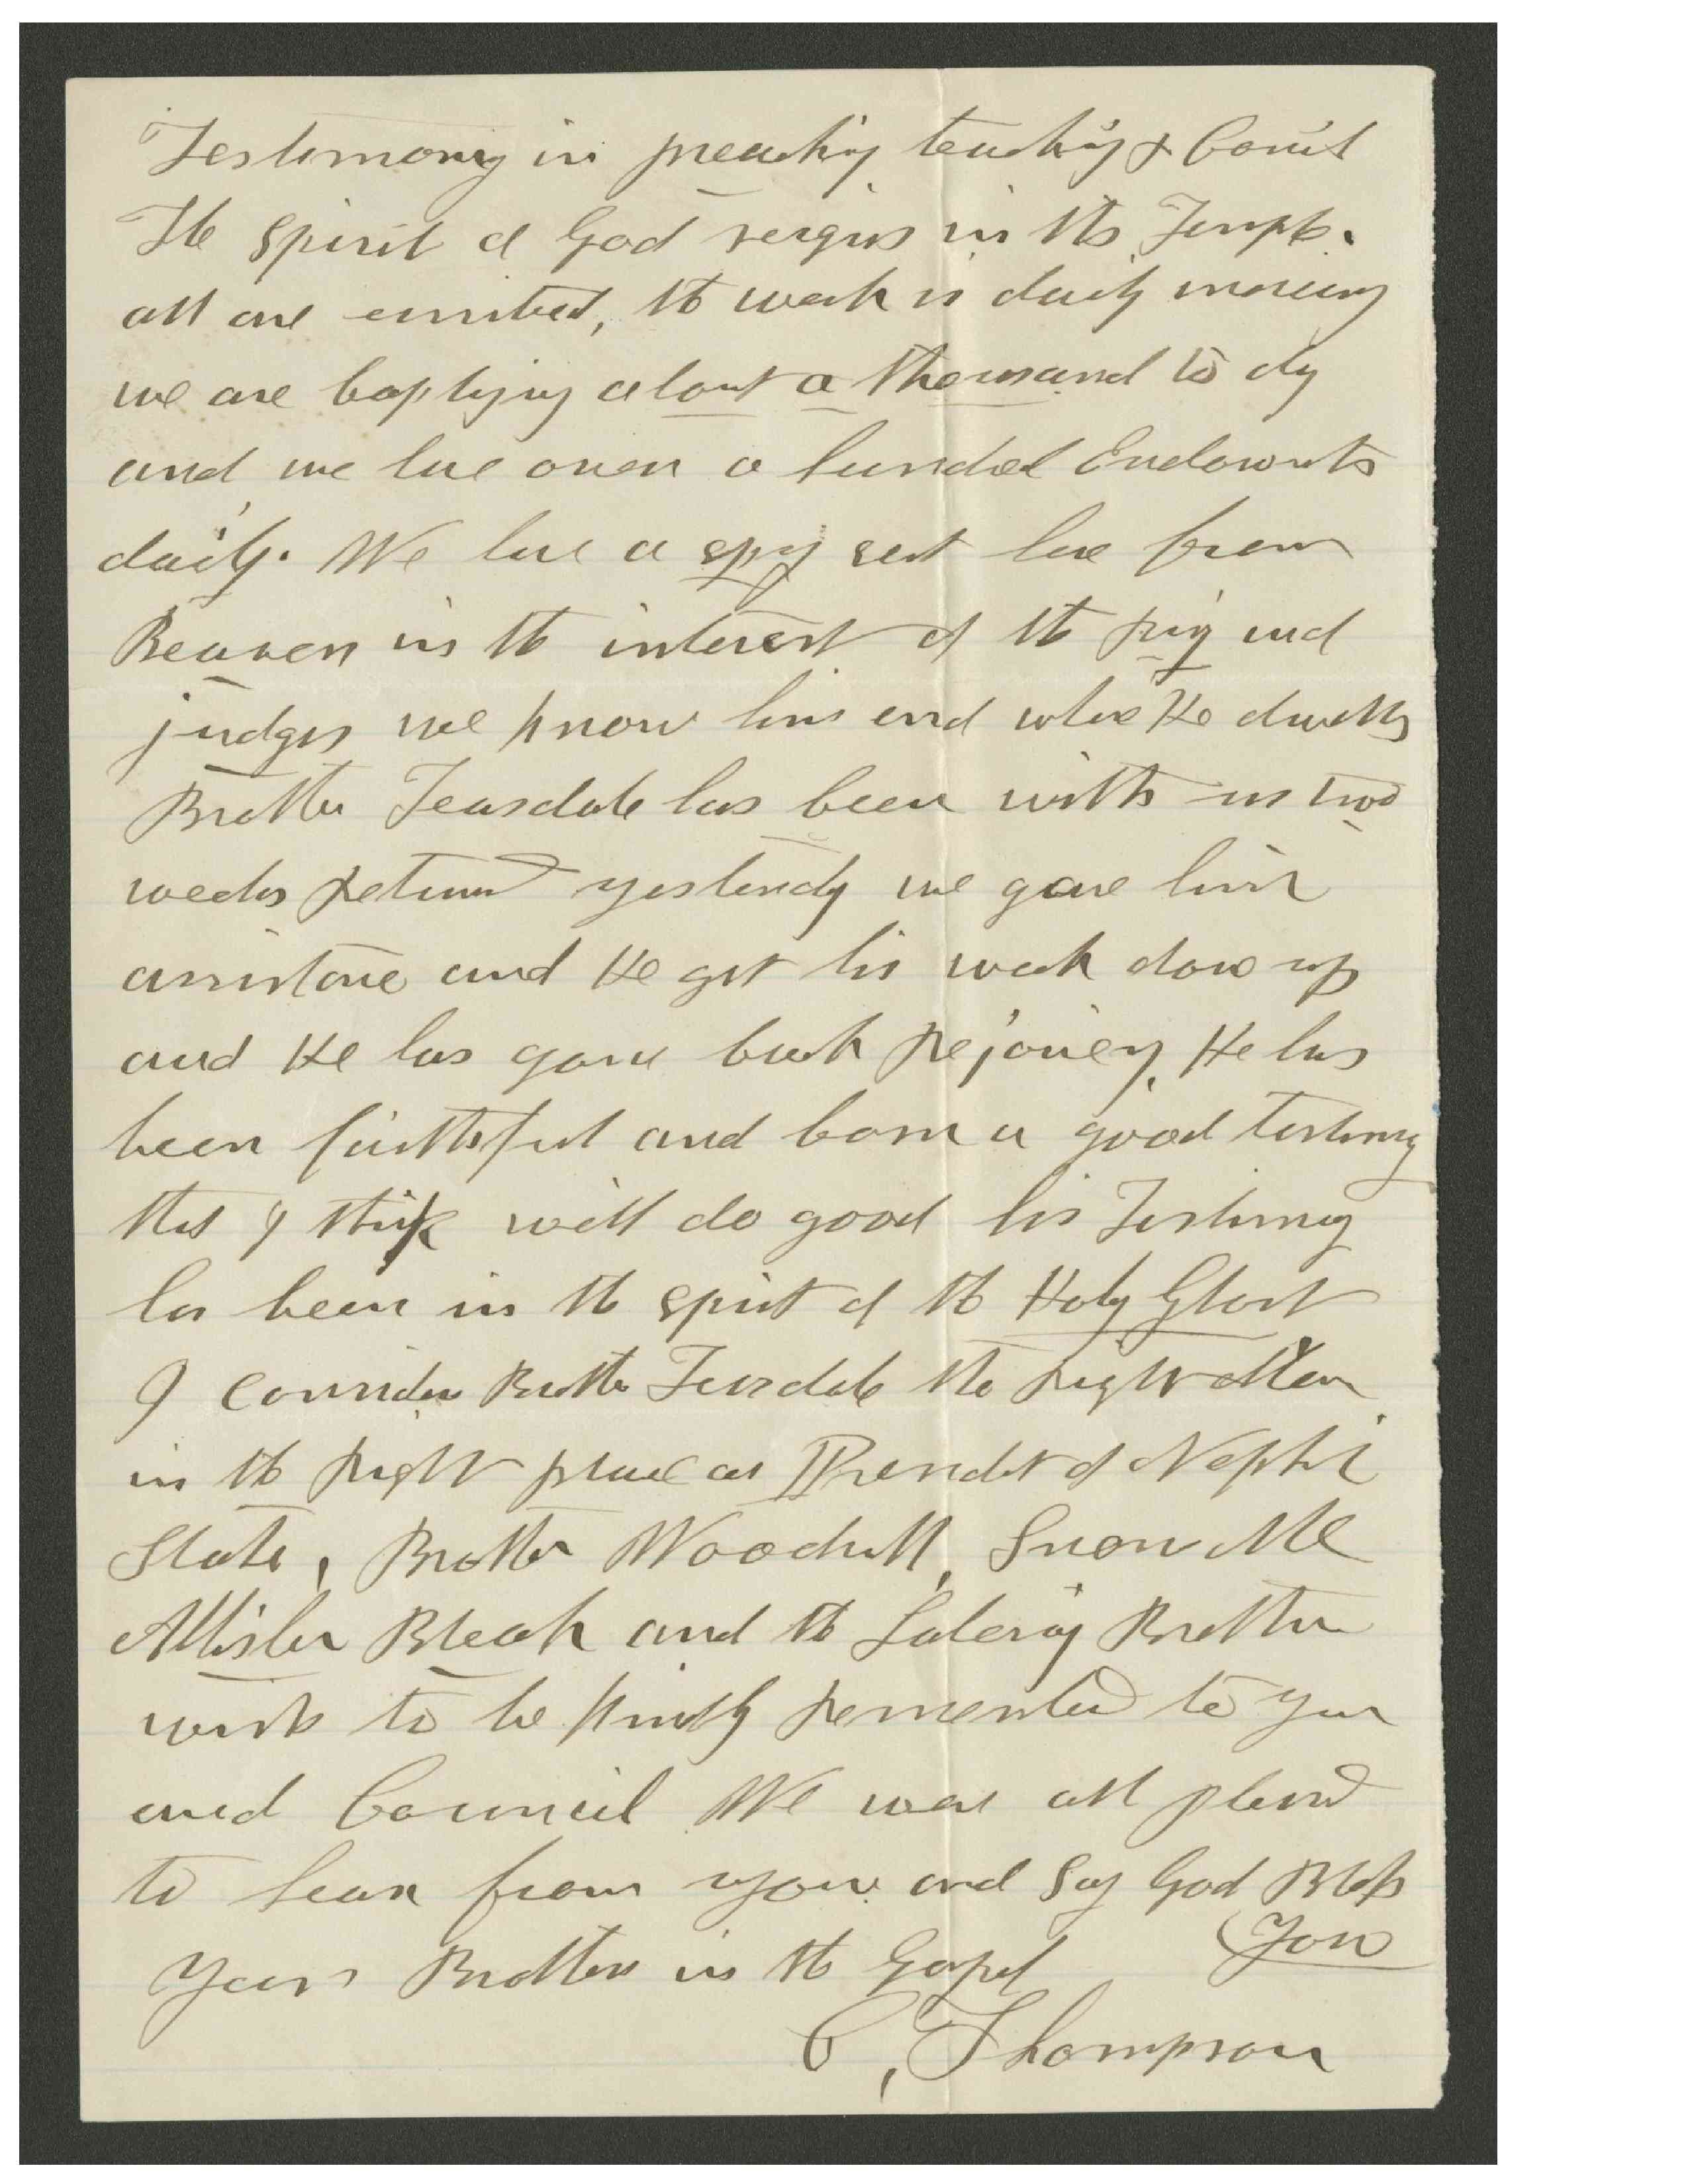 Testimony in preaching teaching & Counil
The Spirit of God reigns in the Temple.
all are united, the work is daily moveing
we are baptizing about a thousand to dy
and we have over a hundred Endowments
daily. We have a spy sent here from
Beaver in the interest of the ring and
judges we know him and where He dwells
Brother Teasdale has been with us two
weeks returnd yesterdy we gave him
assistance and He got his work done up
and He has gone back rejoiceing He has
been faithful and born a good testimony
that I think will do good his Testimony
has been in the spirit of the Holy Ghost
I Consider Brother Teasdale the right Man
in the right place as President of Nephi
Stake, Brother Woodruff, Snow Mc
Allister Bleak and the Laboring Brethren
wish to be kindly rememberd to you
and Council We was all pleasd
to hear from you and Say God Bless
You
Your Brother in the Gospel
C, Thompson